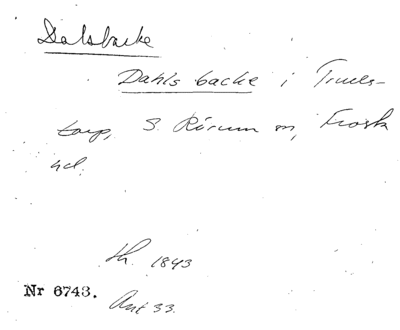 Dalsbacke
Dahls backe i Truels-
torp, S. Rörum sn, Frosta
hd.
th. 1843
Nr 6743.
Ant 33.